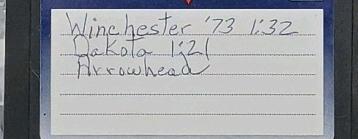 Winchester '73 1:32
Dakota 1:21
Arrowhead